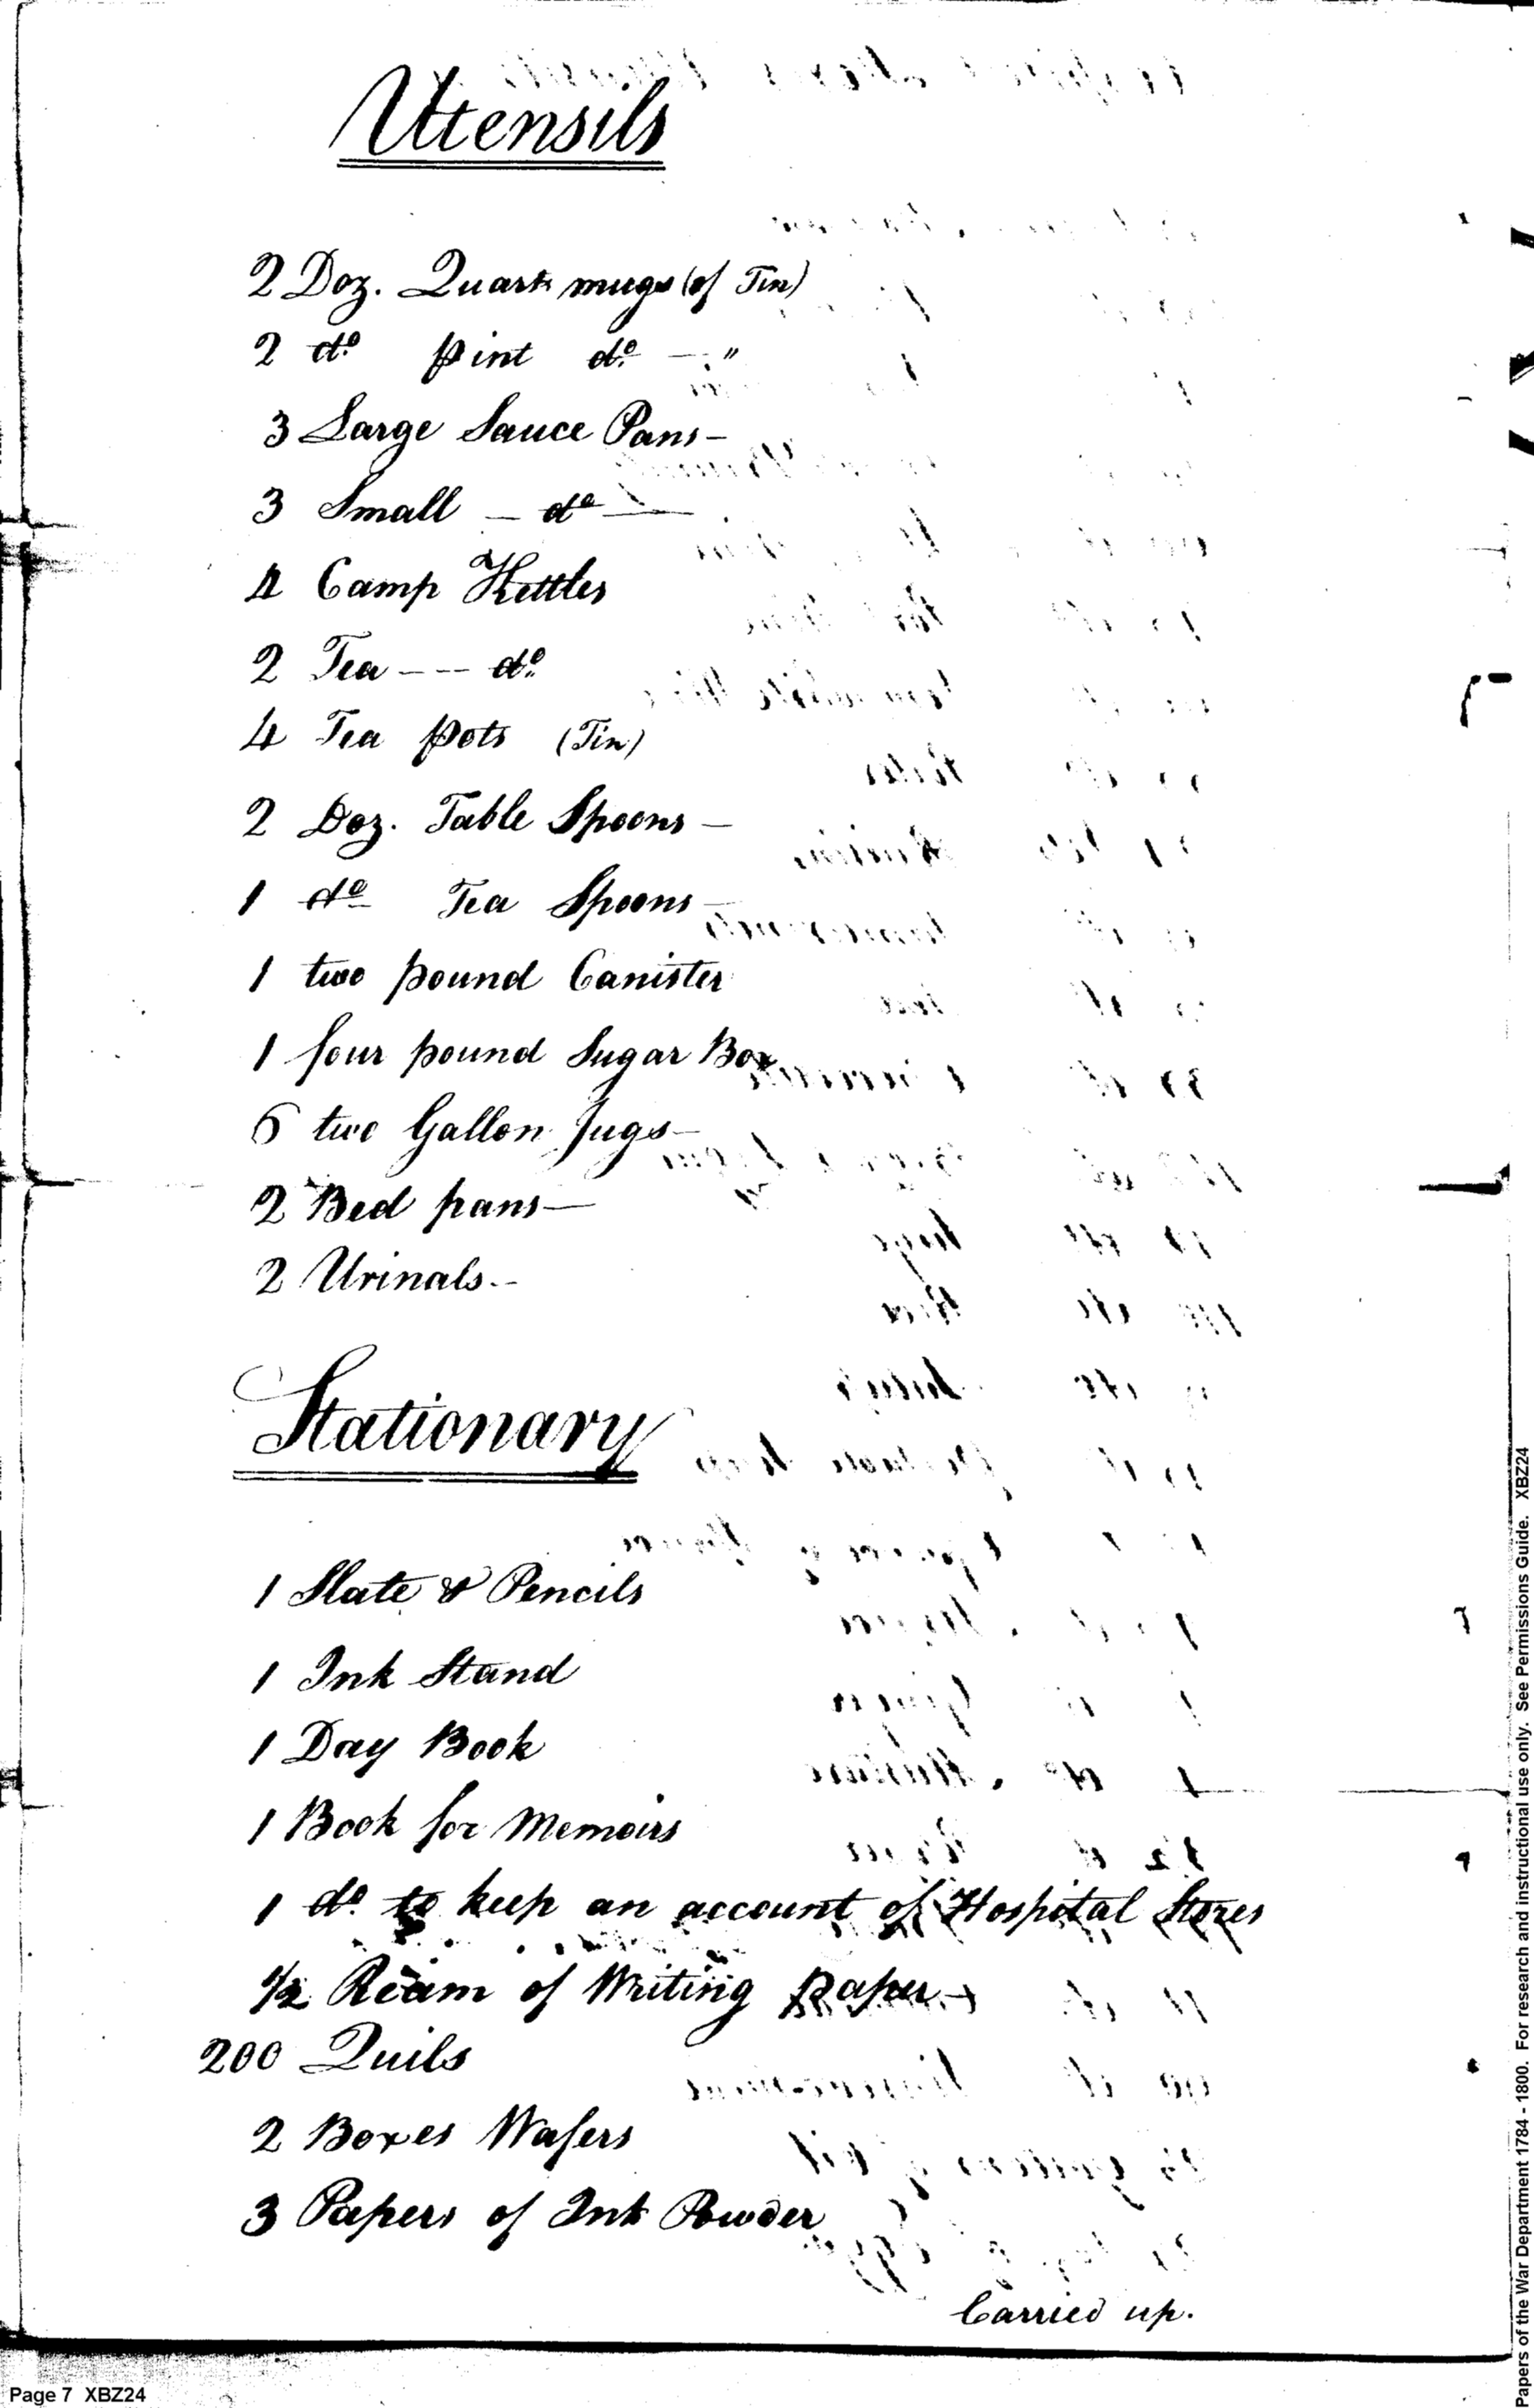 Uttensils
2 Doz. Quart mugs (of Tin)
2 do. pint do. — "
3 Large Sauce Pans —
3 Small — do —
4 Camp Kettles
2 Tea - - - do.
4 Tea pots (Tin)
2 Doz. Table Spoons —
1 do Tea Spoons —
1 two pound Canister
1 four pound Sugar Box
6 two Gallon Jugs —
2 Bed pans —
2 Urinals. -
Stationary
1 Slate & Pencils
1 Ink Stand
1 Day Book
1 Book for Memoirs
1 do. to keep an account of Hospital Stores
1/2 Ream of Writing paper —
200 Quils
2 Boxes Wafers
3 Papers of Ink Powder
Carried up.
Page 7 XBZ24
Papers of the War Department 1784 - 1800. For research and instructional use only. See Permissions Guide. XBZ24